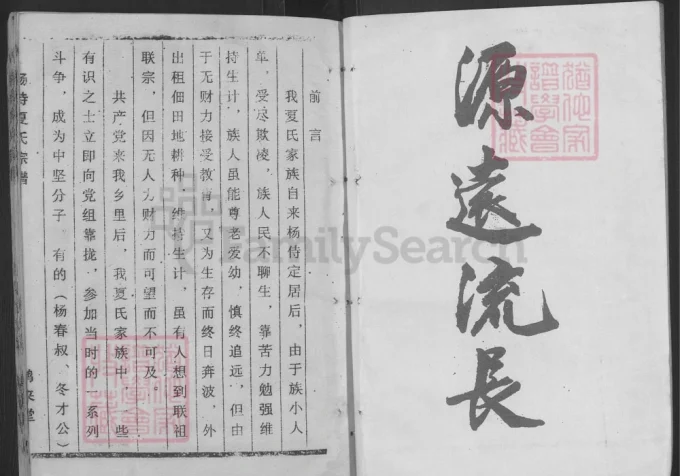 源遠流長
前言
我夏氏家族自来杨侍定居后，由于族小人
单，受尽欺凌，族人民不聊生，靠苦力勉强维
持生计，族人虽能尊老爱幼，慎终追远，但由
于无财力接受教育，又为生存而终日奔波，外
出租佃田地耕种，维持生计，虽有人想到联祖
联宗，但因无人力财力而可望而不可及。
共产党来我乡里后，我夏氏家族中，一些
有识之士立即向党组靠拢，参加当时的一系列
斗争，成为中坚分子，有的（杨春叔、冬才公）
杨侍夏氏宗谱
FamilySearch